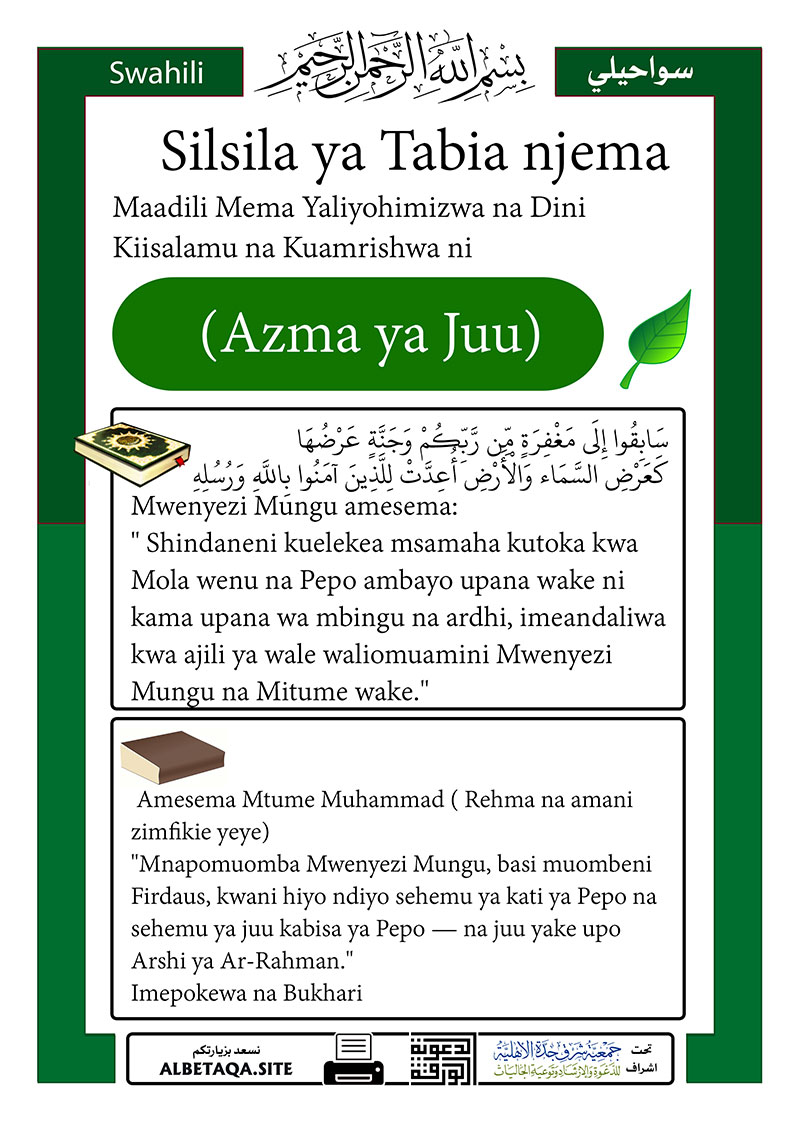 Swahili
بسم الله الرحمن الرحيم
سواحيلي
Silsila ya Tabia njema
Maadili Mema Yaliyohimizwa na Dini
Kiisalamu na Kuamrishwa ni
(Azma ya Juu)
سَابِقُوا إِلَى مَغْفِرَةٍ مِّن رَّبِّكُمْ وَجَنَّةٍ عَرْضُهَا
كَعَرْضِ السَّمَاء وَالْأَرْضِ أُعِدَّتْ لِلَّذِينَ آمَنُوا بِاللَّهِ وَرُسُلِهِ
Mwenyezi Mungu amesema:
" Shindaneni kuelekea msamaha kutoka kwa
Mola wenu na Pepo ambayo upana wake ni
kama upana wa mbingu na ardhi, imeandaliwa
kwa ajili ya wale waliomuamini Mwenyezi
Mungu na Mitume wake."
Amesema Mtume Muhammad ( Rehma na amani
zimfikie yeye)
"Mnapomuomba Mwenyezi Mungu, basi muombeni
Firdaus, kwani hiyo ndiyo sehemu ya kati ya Pepo na
sehemu ya juu kabisa ya Pepo — na juu yake upo
Arshi ya Ar-Rahman."
Imepokewa na Bukhari
نسعد بزيارتكم
ALBETAQA.SITE
الدعوية
الورقية
جمعية شرق جدة الأهلية
للدعوة والإرشاد وتوعية الجاليات
تحت
اشراف